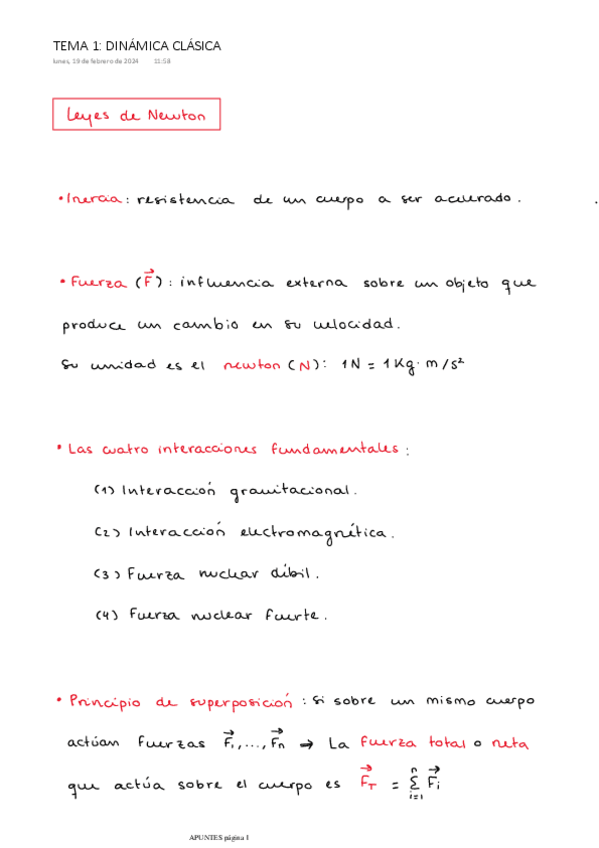 TEMA 1: DINÁMICA CLÁSICA
lunes, 19 de febrero de 2024 11:58
Leyes de Newton
• Inercia: resistencia de un cuerpo a ser acelerado.
• Fuerza (F⃗): influencia externa sobre un objeto que
produce un cambio en su velocidad.
Su unidad es el newton (N): 1N = 1Kg·m/s²
• Las cuatro interacciones fundamentales:
(1) Interacción gravitacional.
(2) Interacción electromagnética.
(3) Fuerza nuclear débil.
(4) Fuerza nuclear fuerte.
• Principio de superposición: si sobre un mismo cuerpo
actúan fuerzas F⃗₁,..., F⃗ₙ → La fuerza total o neta
que actúa sobre el cuerpo es F⃗_T = Σⁿᵢ₌₁ F⃗ᵢ
APUNTES página 1